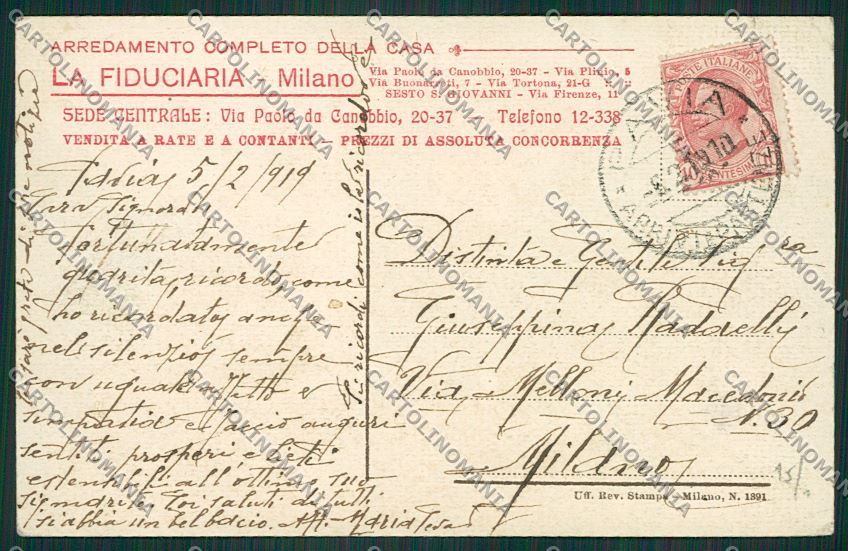 ARREDAMENTO COMPLETO DELLA CASA
LA FIDUCIARIA - Milano
Via Paolo da Canobbio, 20-37 - Via Plinio, 5
Via Buonarroti, 7 - Via Tortona, 21-G
SESTO S. GIOVANNI - Via Firenze, 11
SEDE CENTRALE: Via Paolo da Canobbio, 20-37 Telefono 12-338
VENDITA A RATE E A CONTANTI - PREZZI DI ASSOLUTA CONCORRENZA
POSTE ITALIANE
CENTESIMI
5/2/919
Cara Signora
fortunatamente
guarita, ricordo, come
ho ricordato anche
nel silenzio sempre
con uguale affetto e
simpatia e faccio auguri
sentiti prosperi e lieti
estensibili all'ottimo suo
saluti da tutti
si abbia un bel bacio. Aff. Maria
Si ricordi come io la ricordo e
Distinta e Gentile Sigra
Giuseppina Radaelli
Via Melloni Macedonio
N. 30
Milano
Uff. Rev. Stampa - Milano, N. 1391
15/
CARTOLINOMANIA